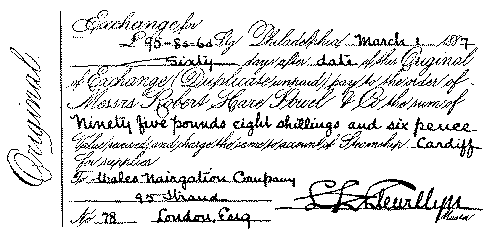 Original
Exchange for
£95-8s-6d Stg Philadelphia March 1 1887
Sixty days after date of this Original
of Exchange (Duplicate unpaid) pay to the order of
Messrs Robert Hare Powel & Co the sum of
Ninety five pounds eight shillings and six pence
Value received and charge the same to account of Steamship Cardiff
for supplies
To Wales Navigation Company
95 Strand
No 78 London, Eng
Llewellyn